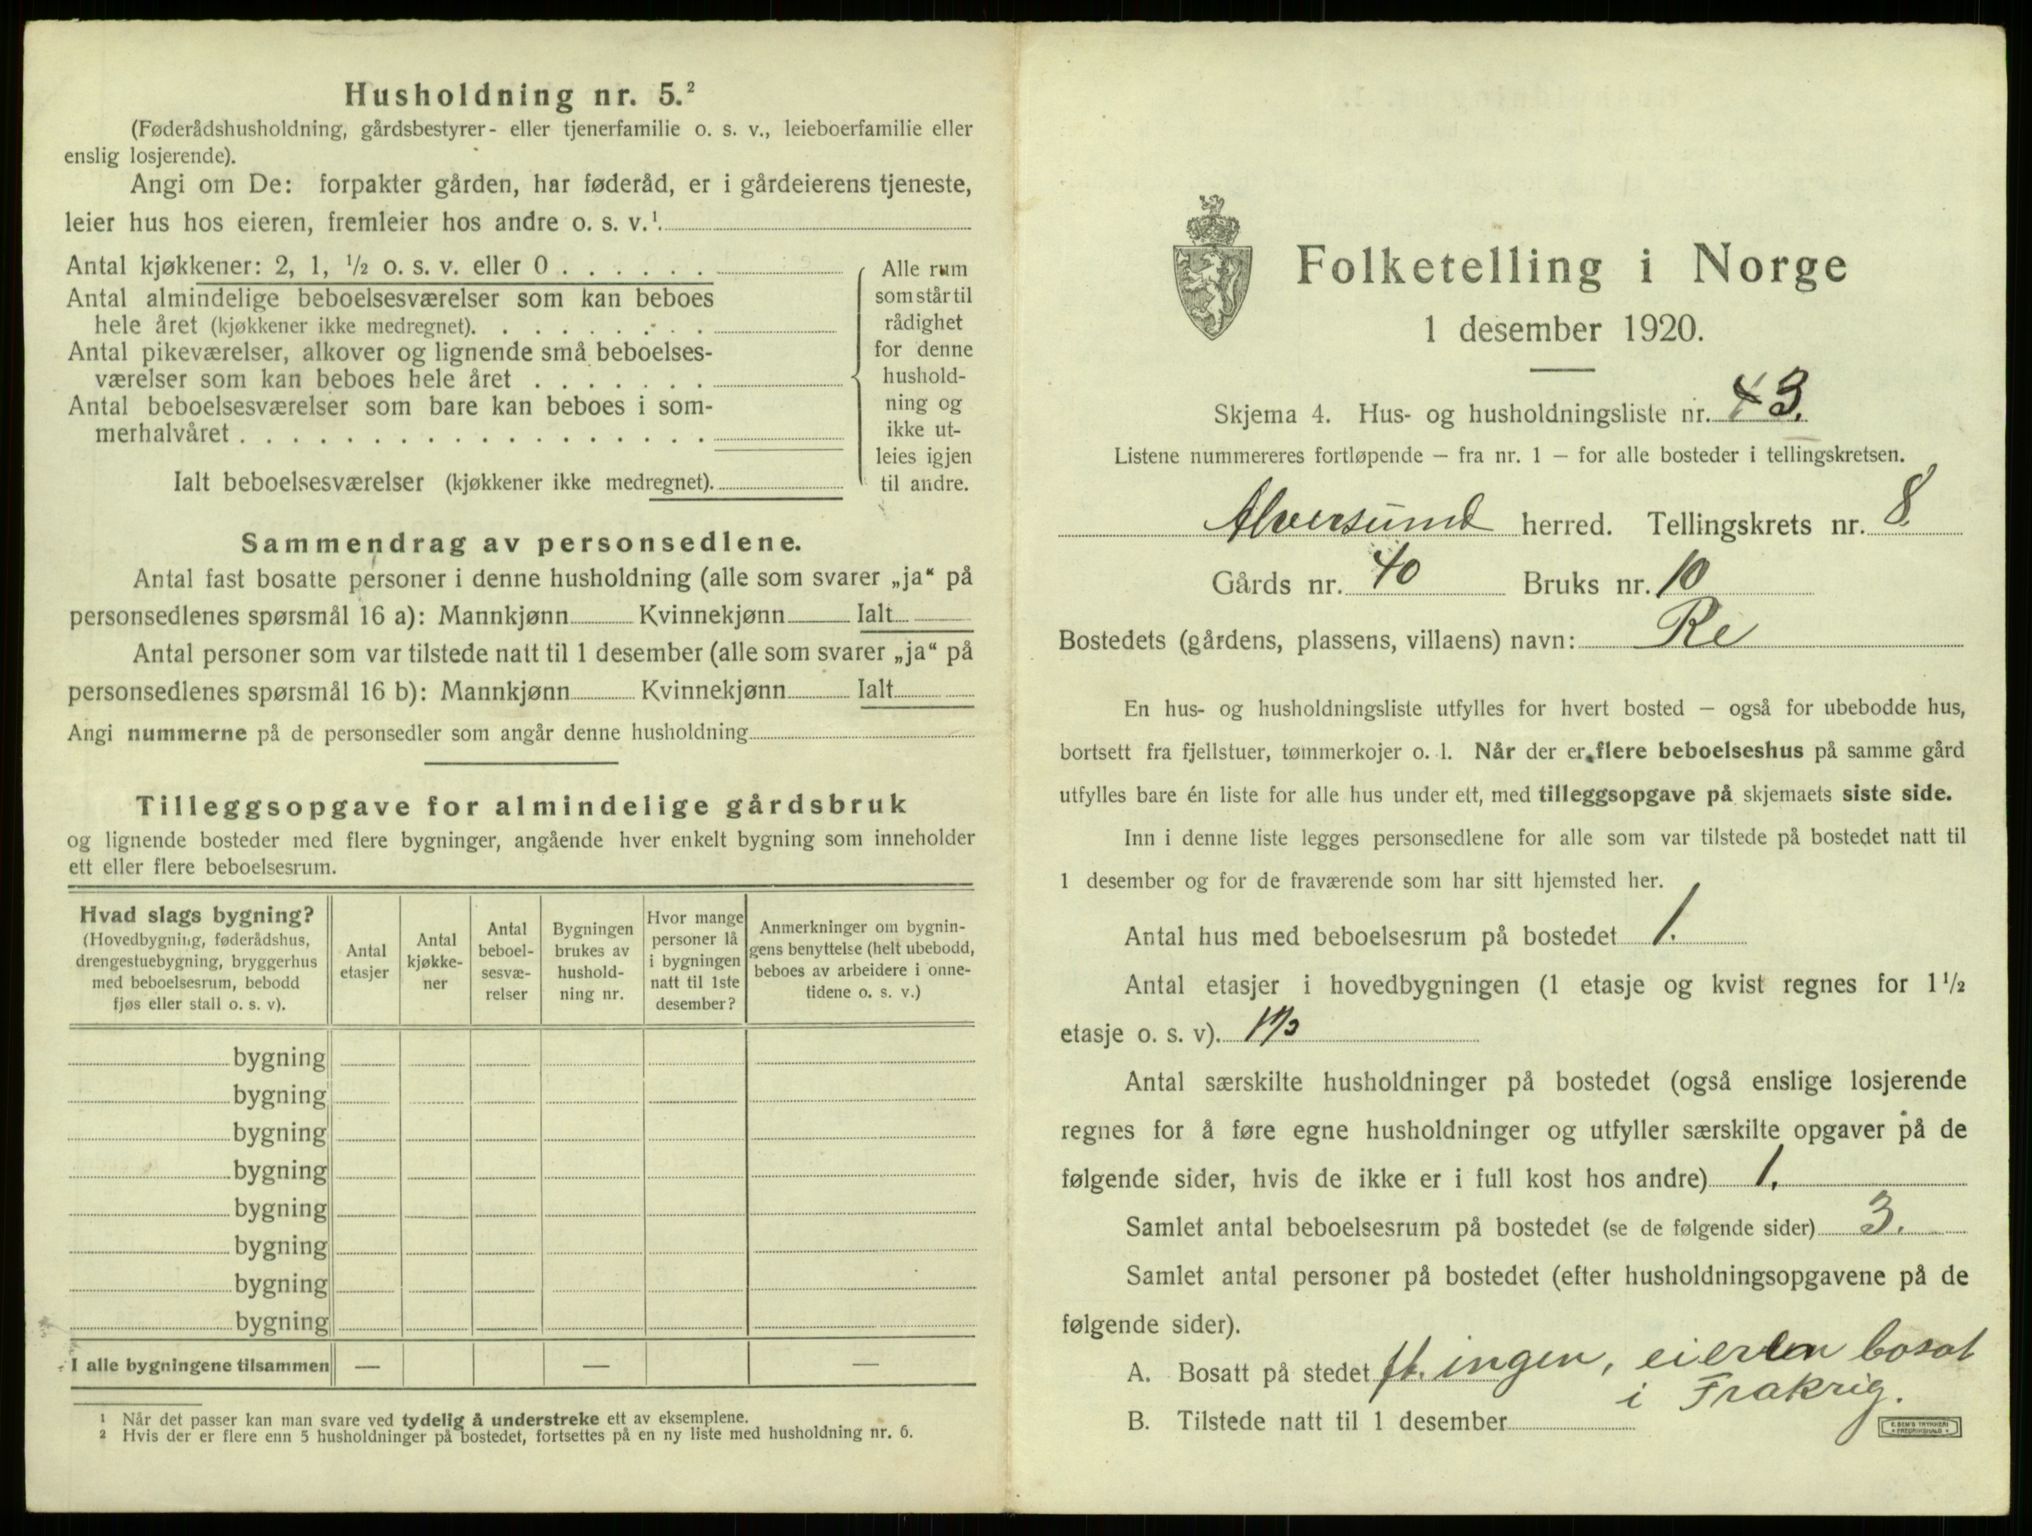 Husholdning nr. 5.²
(Føderådshusholdning, gårdsbestyrer- eller tjenerfamilie o. s. v., leieboerfamilie eller
enslig losjerende).
Angi om De: forpakter gården, har føderåd, er i gårdeierens tjeneste,
leier hus hos eieren, fremleier hos andre o. s. v.¹
Antal kjøkkener: 2, 1, ½ o. s. v. eller 0 . . . . . .
Antal almindelige beboelsesværelser som kan beboes
hele året (kjøkkener ikke medregnet). . . . . . . . .
Antal pikeværelser, alkover og lignende små beboelses-
værelser som kan beboes hele året . . . . . . .
Antal beboelsesværelser som bare kan beboes i som-
merhalvåret . . . . . . . . . . . . . . . . . .
Ialt beboelsesværelser (kjøkkener ikke medregnet).
Alle rum
som står til
rådighet
for denne
hushold-
ning og
ikke ut-
leies igjen
til andre.
Sammendrag av personsedlene.
Antal fast bosatte personer i denne husholdning (alle som svarer „ja“ på
personsedlenes spørsmål 16 a): Mannkjønn Kvinnekjønn Ialt
Antal personer som var tilstede natt til 1 desember (alle som svarer „ja“ på
personsedlenes spørsmål 16 b): Mannkjønn Kvinnekjønn Ialt
Angi nummerne på de personsedler som angår denne husholdning
Tilleggsopgave for almindelige gårdsbruk
og lignende bosteder med flere bygninger, angående hver enkelt bygning som inneholder
ett eller flere beboelsesrum.
Hvad slags bygning?
(Hovedbygning, føderådshus,
drengestuebygning, bryggerhus
med beboelsesrum, bebodd
fjøs eller stall o. s. v).
Antal
etasjer
Antal
kjøkke-
ner
Antal
beboel-
sesvæ-
relser
Bygningen
brukes av
hushold-
ning nr.
Hvor mange
personer lå
i bygningen
natt til 1ste
desember?
Anmerkninger om bygnin-
gens benyttelse (helt ubebodd,
beboes av arbeidere i onne-
tidene o. s. v.)
bygning
bygning
bygning
bygning
bygning
bygning
bygning
bygning
I alle bygningene tilsammen — — —
¹ Når det passer kan man svare ved tydelig å understreke ett av eksemplene.
² Hvis der er flere enn 5 husholdninger på bostedet, fortsettes på en ny liste med husholdning nr. 6.
Folketelling i Norge
1 desember 1920.
Skjema 4. Hus- og husholdningsliste nr. 3.
Listene nummereres fortløpende — fra nr. 1 — for alle bosteder i tellingskretsen.
Alversund herred. Tellingskrets nr. 8.
Gårds nr. 40 Bruks nr. 10
Bostedets (gårdens, plassens, villaens) navn: Re
En hus- og husholdningsliste utfylles for hvert bosted — også for ubebodde hus,
bortsett fra fjellstuer, tømmerkojer o. l. Når der er flere beboelseshus på samme gård
utfylles bare én liste for alle hus under ett, med tilleggsopgave på skjemaets siste side.
Inn i denne liste legges personsedlene for alle som var tilstede på bostedet natt til
1 desember og for de fraværende som har sitt hjemsted her.
Antal hus med beboelsesrum på bostedet 1.
Antal etasjer i hovedbygningen (1 etasje og kvist regnes for 1 ½
etasje o. s. v). 1½
Antal særskilte husholdninger på bostedet (også enslige losjerende
regnes for å føre egne husholdninger og utfyller særskilte opgaver på de
følgende sider, hvis de ikke er i full kost hos andre) 1.
Samlet antal beboelsesrum på bostedet (se de følgende sider) 3.
Samlet antal personer på bostedet (efter husholdningsopgavene på de
følgende sider).
A. Bosatt på stedet ft. ingen, eieren bosat
i Frakrig.
B. Tilstede natt til 1 desember
E. SEM'S TRYKKERI
FREDRIKSHALD